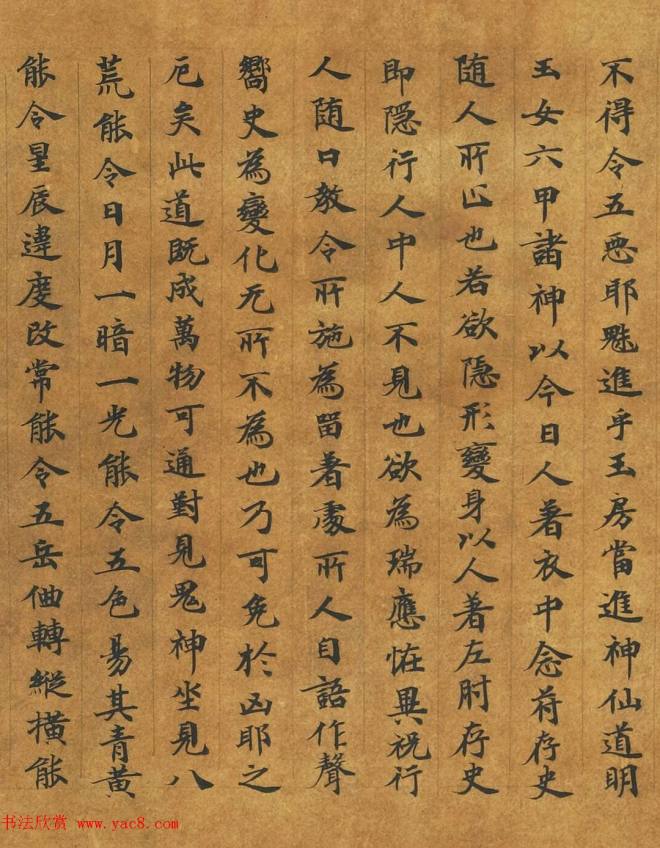 不得令五惡耶魁進乎玉房當進神仙道明
玉女六甲諸神以今日人著衣中念苻存史
随人所止也若欲隠形變身以人著左肘存史
即隠行人中人不見也欲為瑞應恠異祝行
人随口教令所施為留著處所人自語作聲
嚮史為變化无所不為也乃可免於凶耶之
厄矣此道既成萬物可通對見鬼神坐見八
荒能令日月一暗一光能令五色易其青黄
能令星辰違度改常能令五岳㑋轉縱横能
书法欣赏 www.yac8.com